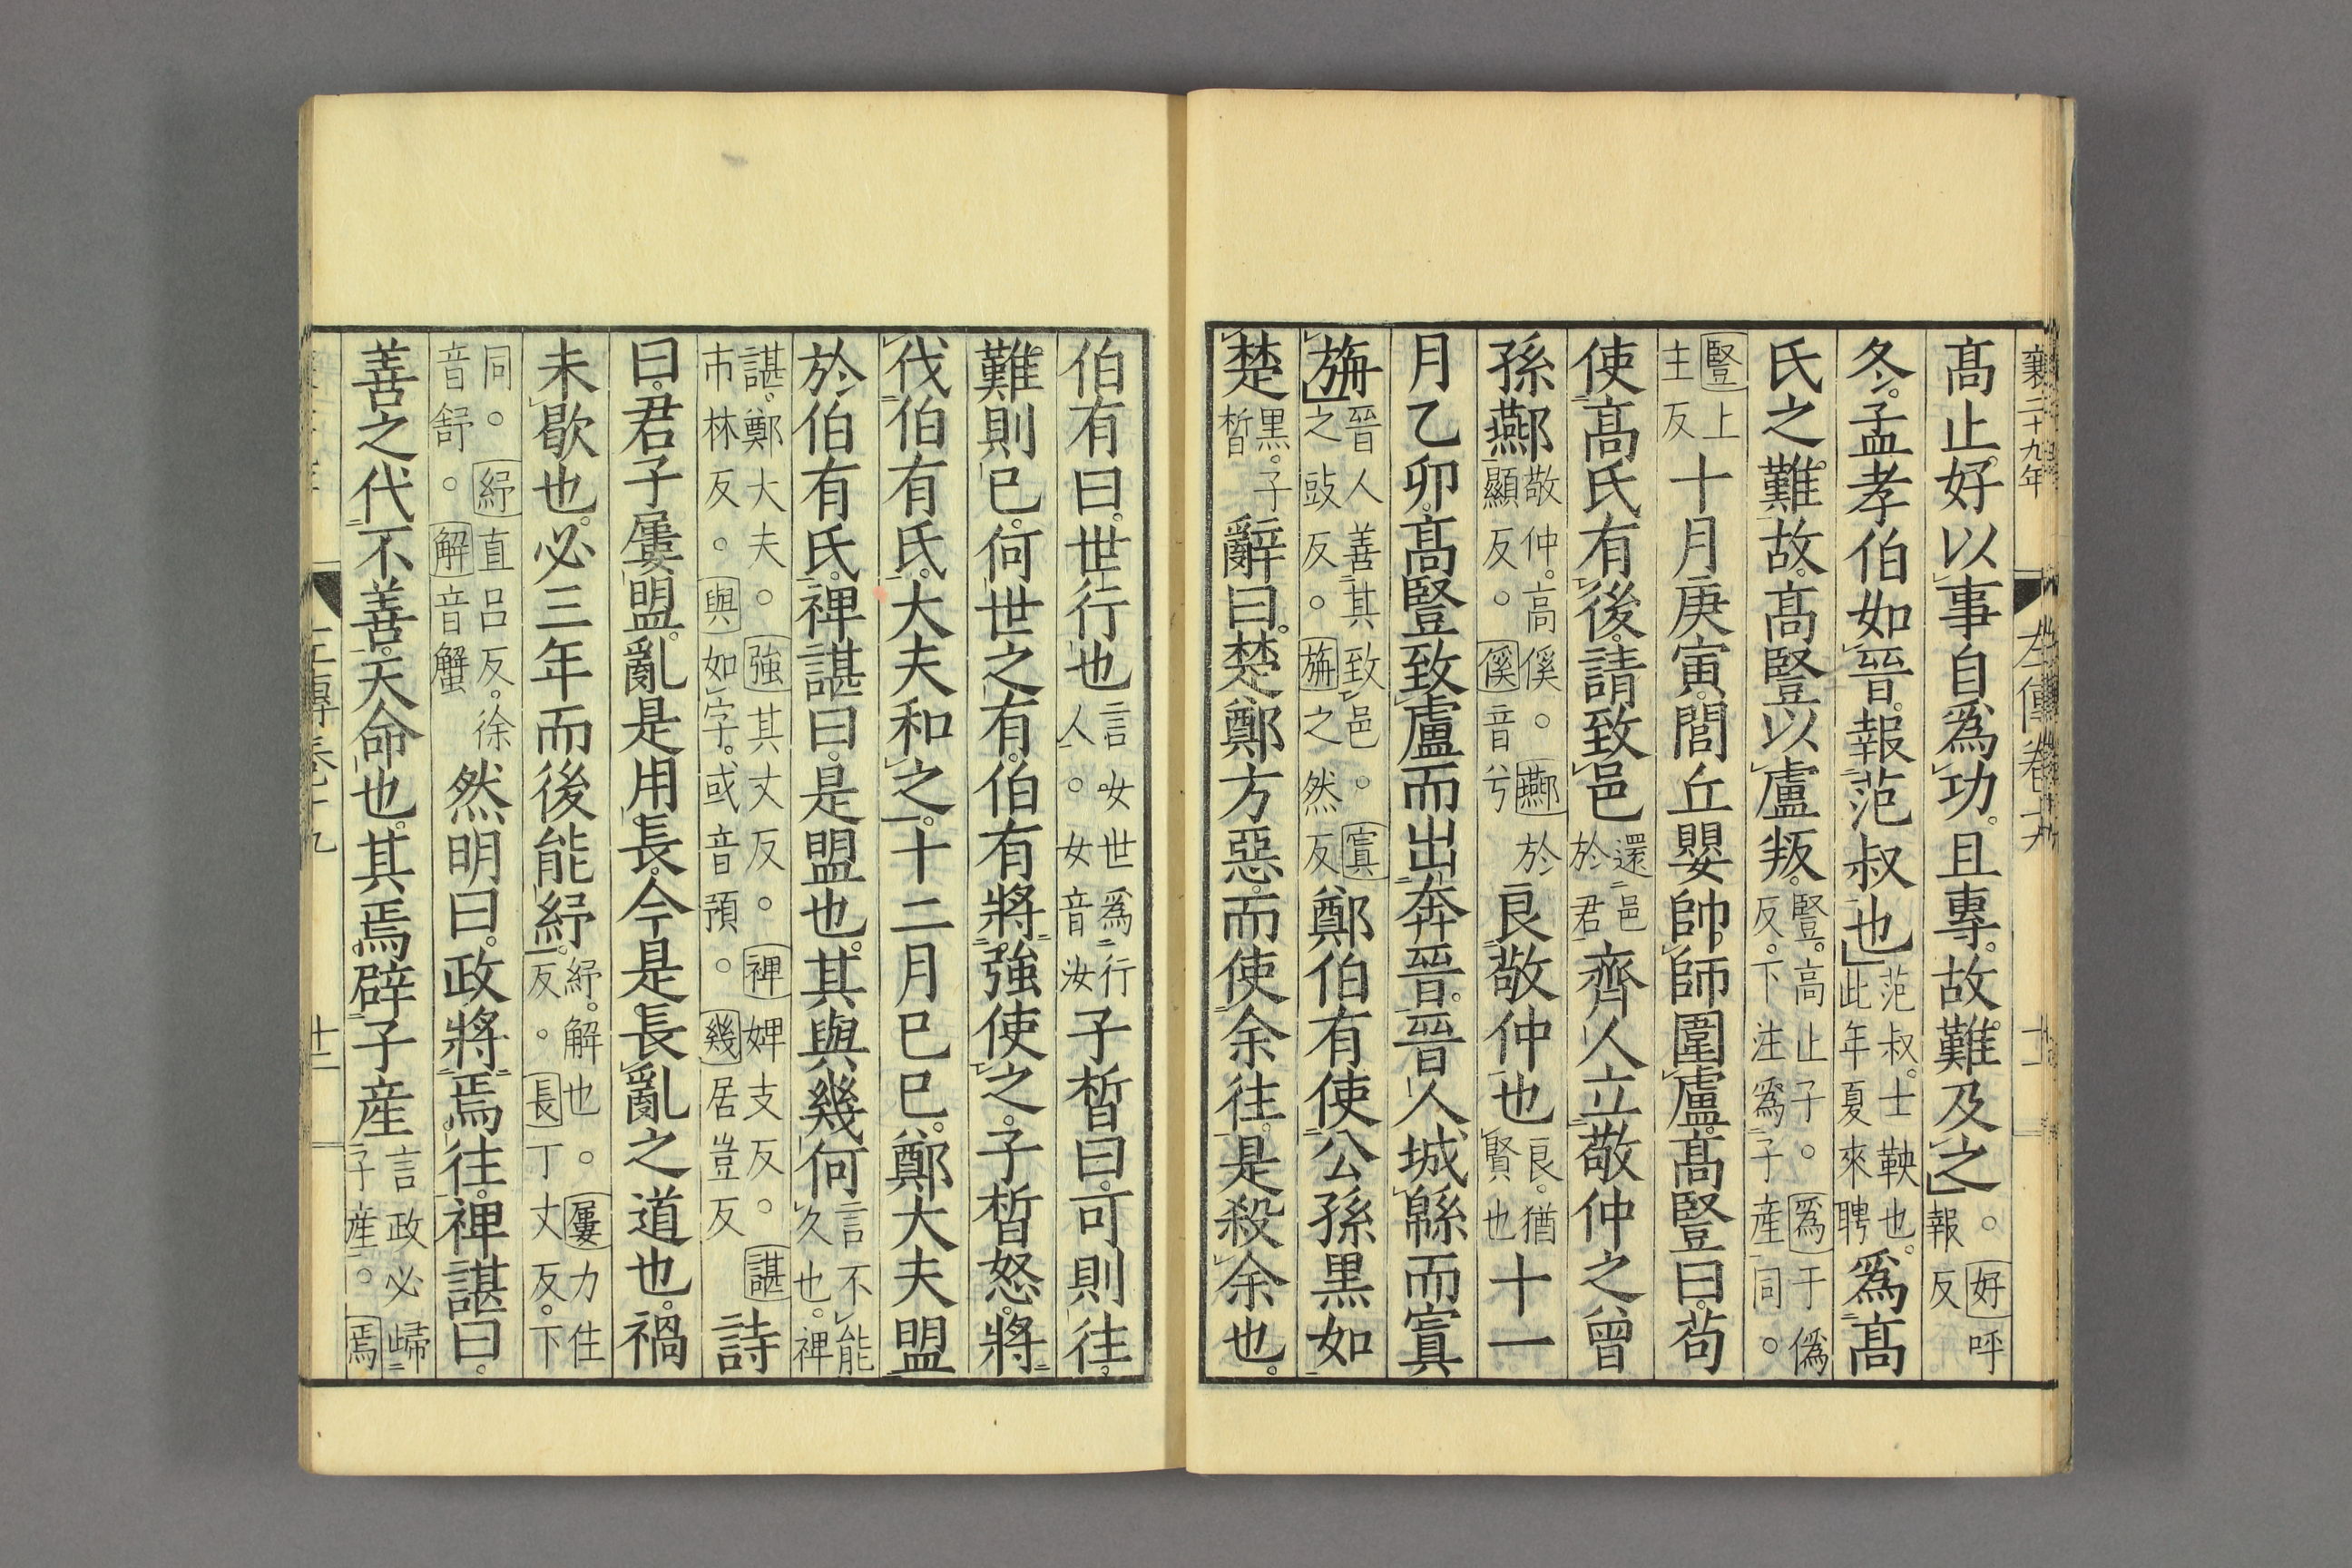 襄二十九年 左傳卷十九 十一
髙止好以事自爲功。且專。故難及之。○好呼報反
冬。孟孝伯如晉。報范叔也范叔。士鞅也。此年夏來聘爲髙
氏之難故。髙豎以盧叛。豎。高止子。○爲于僞反。下注爲子産同。○
豎上主反十月庚寅。閭丘嬰帥師圍盧。髙豎曰。苟
使髙氏有後。請致邑還邑於君齊人立敬仲之曾
孫酀敬仲。高傒。○酀於顯反。○傒音兮良敬仲也良。猶賢也十一
月乙卯。髙豎致盧而出奔晉。晉人城緜而寘
旃晉人善其致邑。○寘之豉反。○旃之然反鄭伯有使公孫黒如
楚黒。子晳辭曰。楚鄭方惡。而使余往。是殺余也。
伯有曰。世行也言女世爲行人。○女音汝子晳曰。可則往。
難則已。何世之有。伯有將強使之。子晳怒。將
伐伯有氏。大夫和之。十二月己巳。鄭大夫盟
於伯有氏。裨諶曰。是盟也。其與幾何言不能久也。裨
諶。鄭大夫。○強其丈反。○裨婢支反。○諶市林反。○與如字。或音預。○幾居豈反詩
曰。君子屢盟。亂是用長。今是長亂之道也。禍
未歇也。必三年而後能紓。紓。解也。○屢力住反。○長丁丈反。下
同。○紓直呂反。徐音舒。○解音蟹然明曰。政將焉往。裨諶曰。
善之代不善。天命也。其焉辟子産言政必歸子産。○焉
左傳卷十九 十二